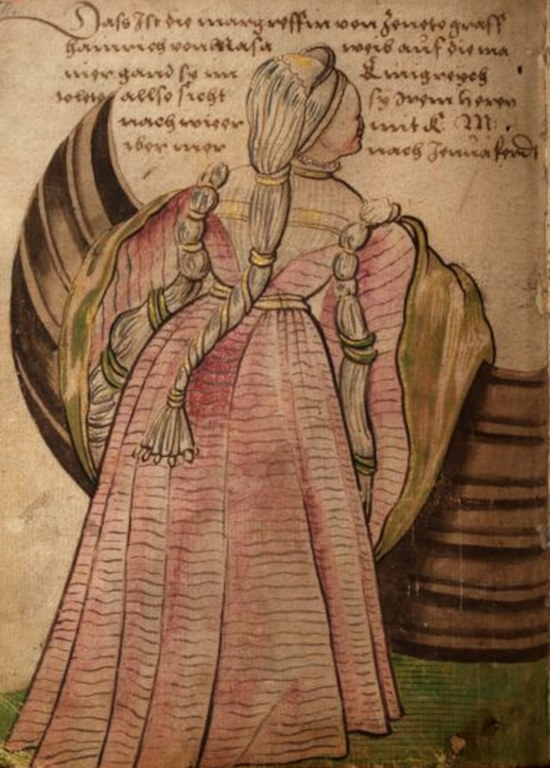 Dass Ist die margreffin von Zenete graff
hainrich von Nasa weib auf die ma
nier gand sy im Kunigreych
allso sicht sy Irem heren
nach wieer mit K. M:
iber mer nach Jenua